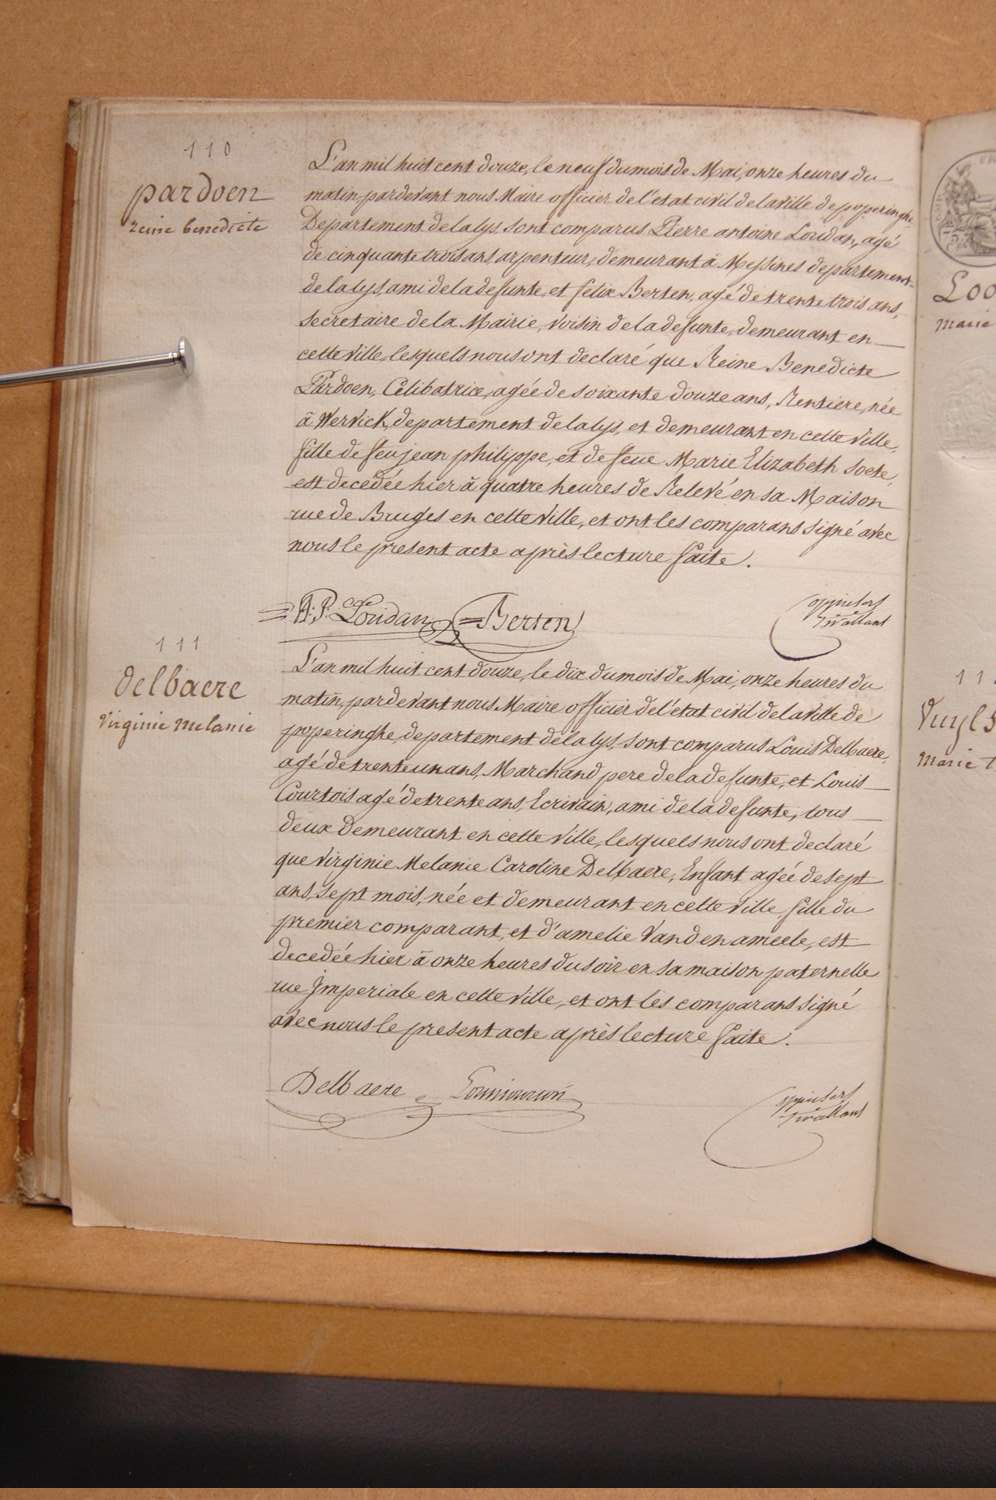 110
pardoen
reine benedicte
L'an mil huit cent douze, le neuf du mois de Mai, onze heures du
matin, pardevant nous Maire officier de l'etat civil de la ville de poperinghe
Departement de la lys, sont comparus Pierre antoine Loudan, agé
de cinquante trois ans arpenteur, demeurant à Messines departement
de la lys, ami de la defunte, et felix Berten, agé de trente trois ans,
secretaire de la Mairie, voisin de la defunte, demeurant en
cette ville, lesquels nous ont declaré que Reine Benedicte
Pardoen, Celibatrice, agée de soixante douze ans, Rentiere, née
à Wervick, departement de la lys, et demeurant en cette ville,
fille de feu jean philippe, et de feue Marie Elizabeth Soete,
est decedée hier à quatre heures de Relevé en sa Maison
rue de Bruges en cette ville, et ont les comparans signé avec
nous le present acte après lecture faite.
A: P: Loudan Berten
111
Delbaere
virginie melanie
L'an mil huit cent douze, le dix du mois de Mai, onze heures du
matin, pardevant nous Maire officier de l'etat civil de la ville de
poperinghe, departement de la lys, sont comparus Louis Delbaere,
agé de trente un ans, Marchand, pere de la defunte, et Louis
Courtois agé de trente ans, Ecrivain, ami de la defunte, tous
deux demeurant en cette ville, lesquels nous ont declaré
que virginie Melanie Caroline Delbaere, Enfant agée de sept
ans, sept mois, née et demeurant en cette ville, fille du
premier comparant, et d'amelie Vandenameele, est
decedée hier à onze heures du soir en sa maison paternelle
rue Imperiale en cette ville, et ont les comparans signé
avec nous le present acte après lecture faite.
Delbaere
11
Loo
marie
Vuyls
marie